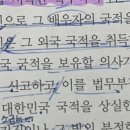 으로 그 배우자의 국적
그 외국 국적을 취득
국 국적을 보유할 의사가
신고하고 이를 법무부
대한민국 국적을 상실한